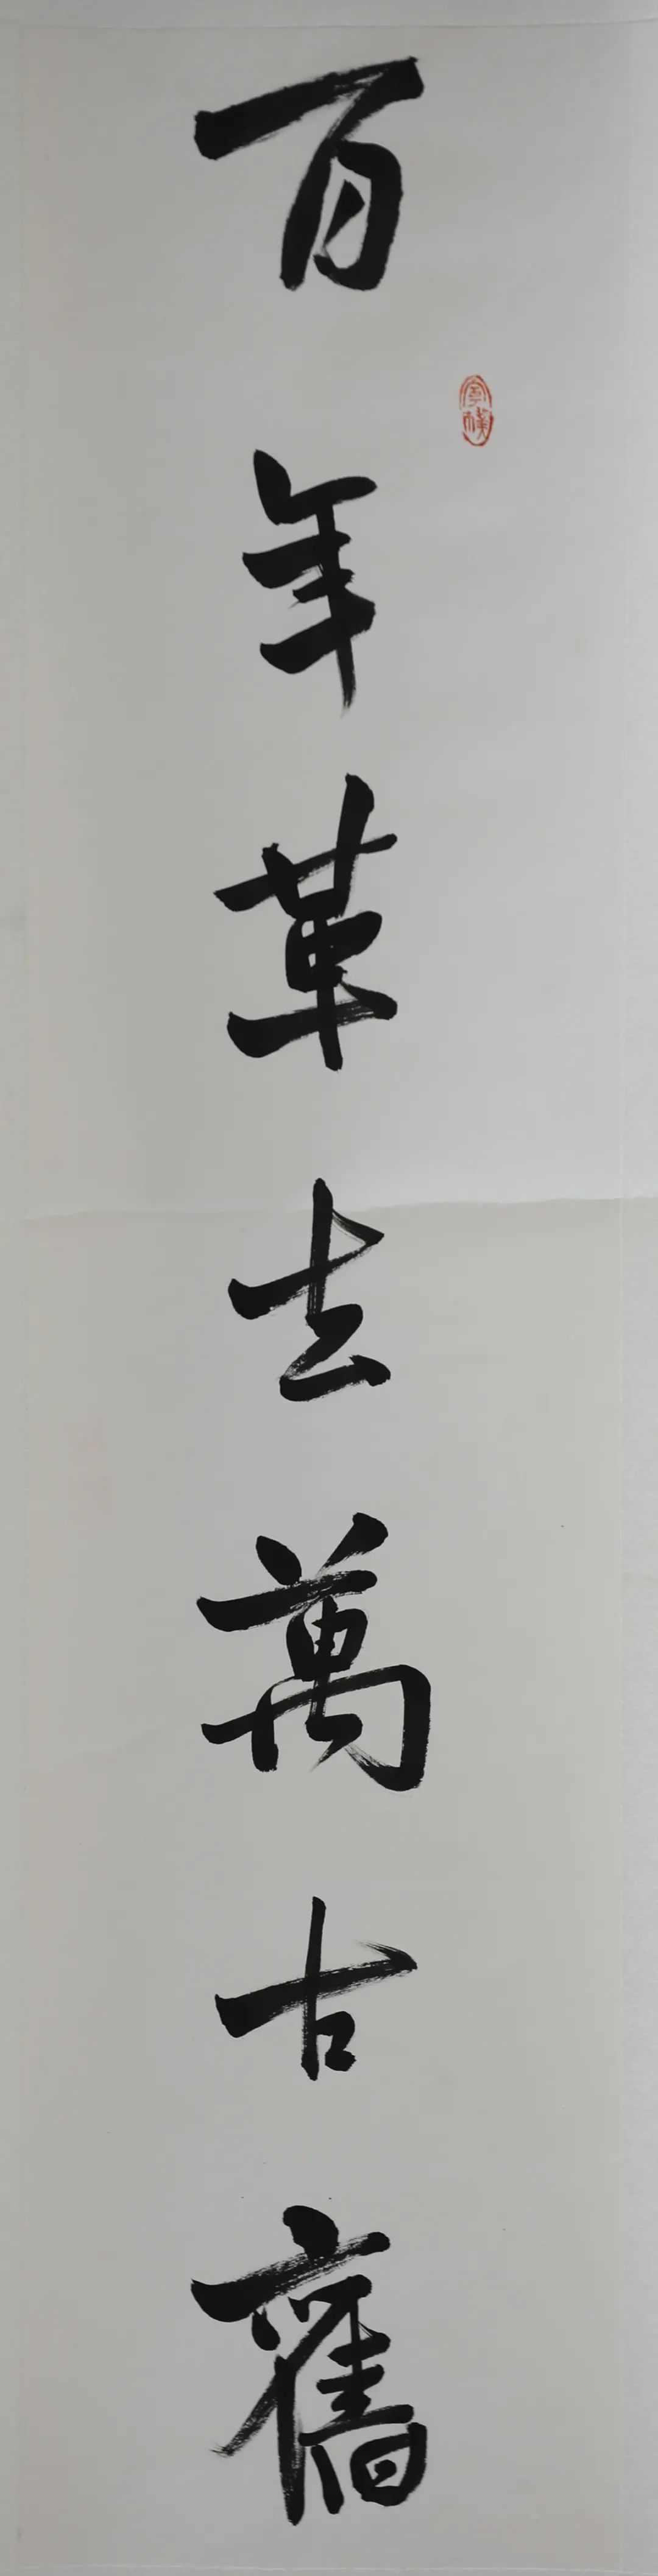 百年革去萬古舊